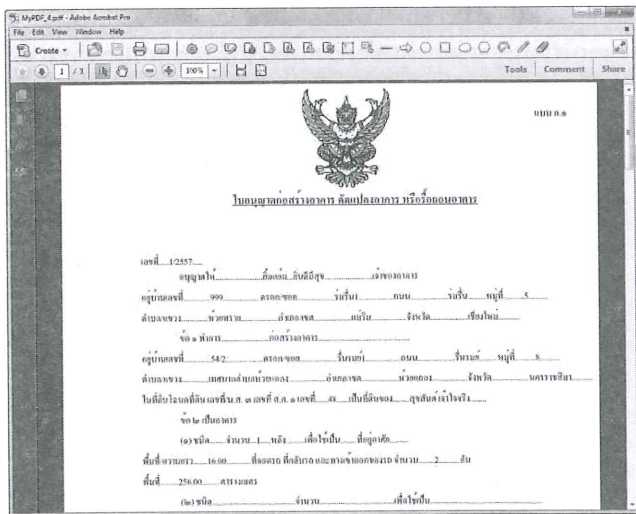 MyPDF_4.pdf - Adobe Acrobat Pro
File Edit View Window Help
Create
1 / 3 100% Tools Comment Share
แบบ อ.๑
ใบอนุญาตก่อสร้างอาคาร ดัดแปลงอาคาร หรือรื้อถอนอาคาร
เลขที่.....1/2557.....
อนุญาตให้ ยินดีมีสุข เจ้าของอาคาร
อยู่บ้านเลขที่ 999 ตรอก/ซอย ร่มรื่น1 ถนน ร่มรื่น หมู่ที่ 5
ตำบล/แขวง ห้วยทราย อำเภอ/เขต แม่ริม จังหวัด เชียงใหม่
ข้อ ๑ ทำการ ก่อสร้างอาคาร
อยู่บ้านเลขที่ 54/2 ตรอก/ซอย ชื่นรมย์1 ถนน ชื่นรมย์ หมู่ที่ 8
ตำบล/แขวง เทศบาลตำบลห้วยแถลง อำเภอ/เขต ห้วยแถลง จังหวัด นครราชสีมา
ในที่ดินโฉนดที่ดิน เลขที่/น.ส. ๓ เลขที่/ส.ค. ๑ เลขที่ 48 เป็นที่ดินของ สุขสันต์ เจ้าใจจริง
ข้อ ๒ เป็นอาคาร
(๑) ชนิด จำนวน 1 หลัง เพื่อใช้เป็น ที่อยู่อาศัย
พื้นที่/ความยาว 16.00 ที่จอดรถ ที่กลับรถ และทางเข้าออกของรถ จำนวน 2 คัน
พื้นที่ 256.00 ตารางเมตร
(๒) ชนิด จำนวน เพื่อใช้เป็น